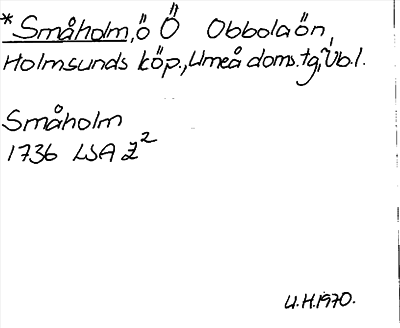 *Småholm, ö Ö Obbolaön,
Holmsunds köp., Umeå doms.tg, Vb.l.
Småholm
1736 LSA Z²
U.H. 1970.